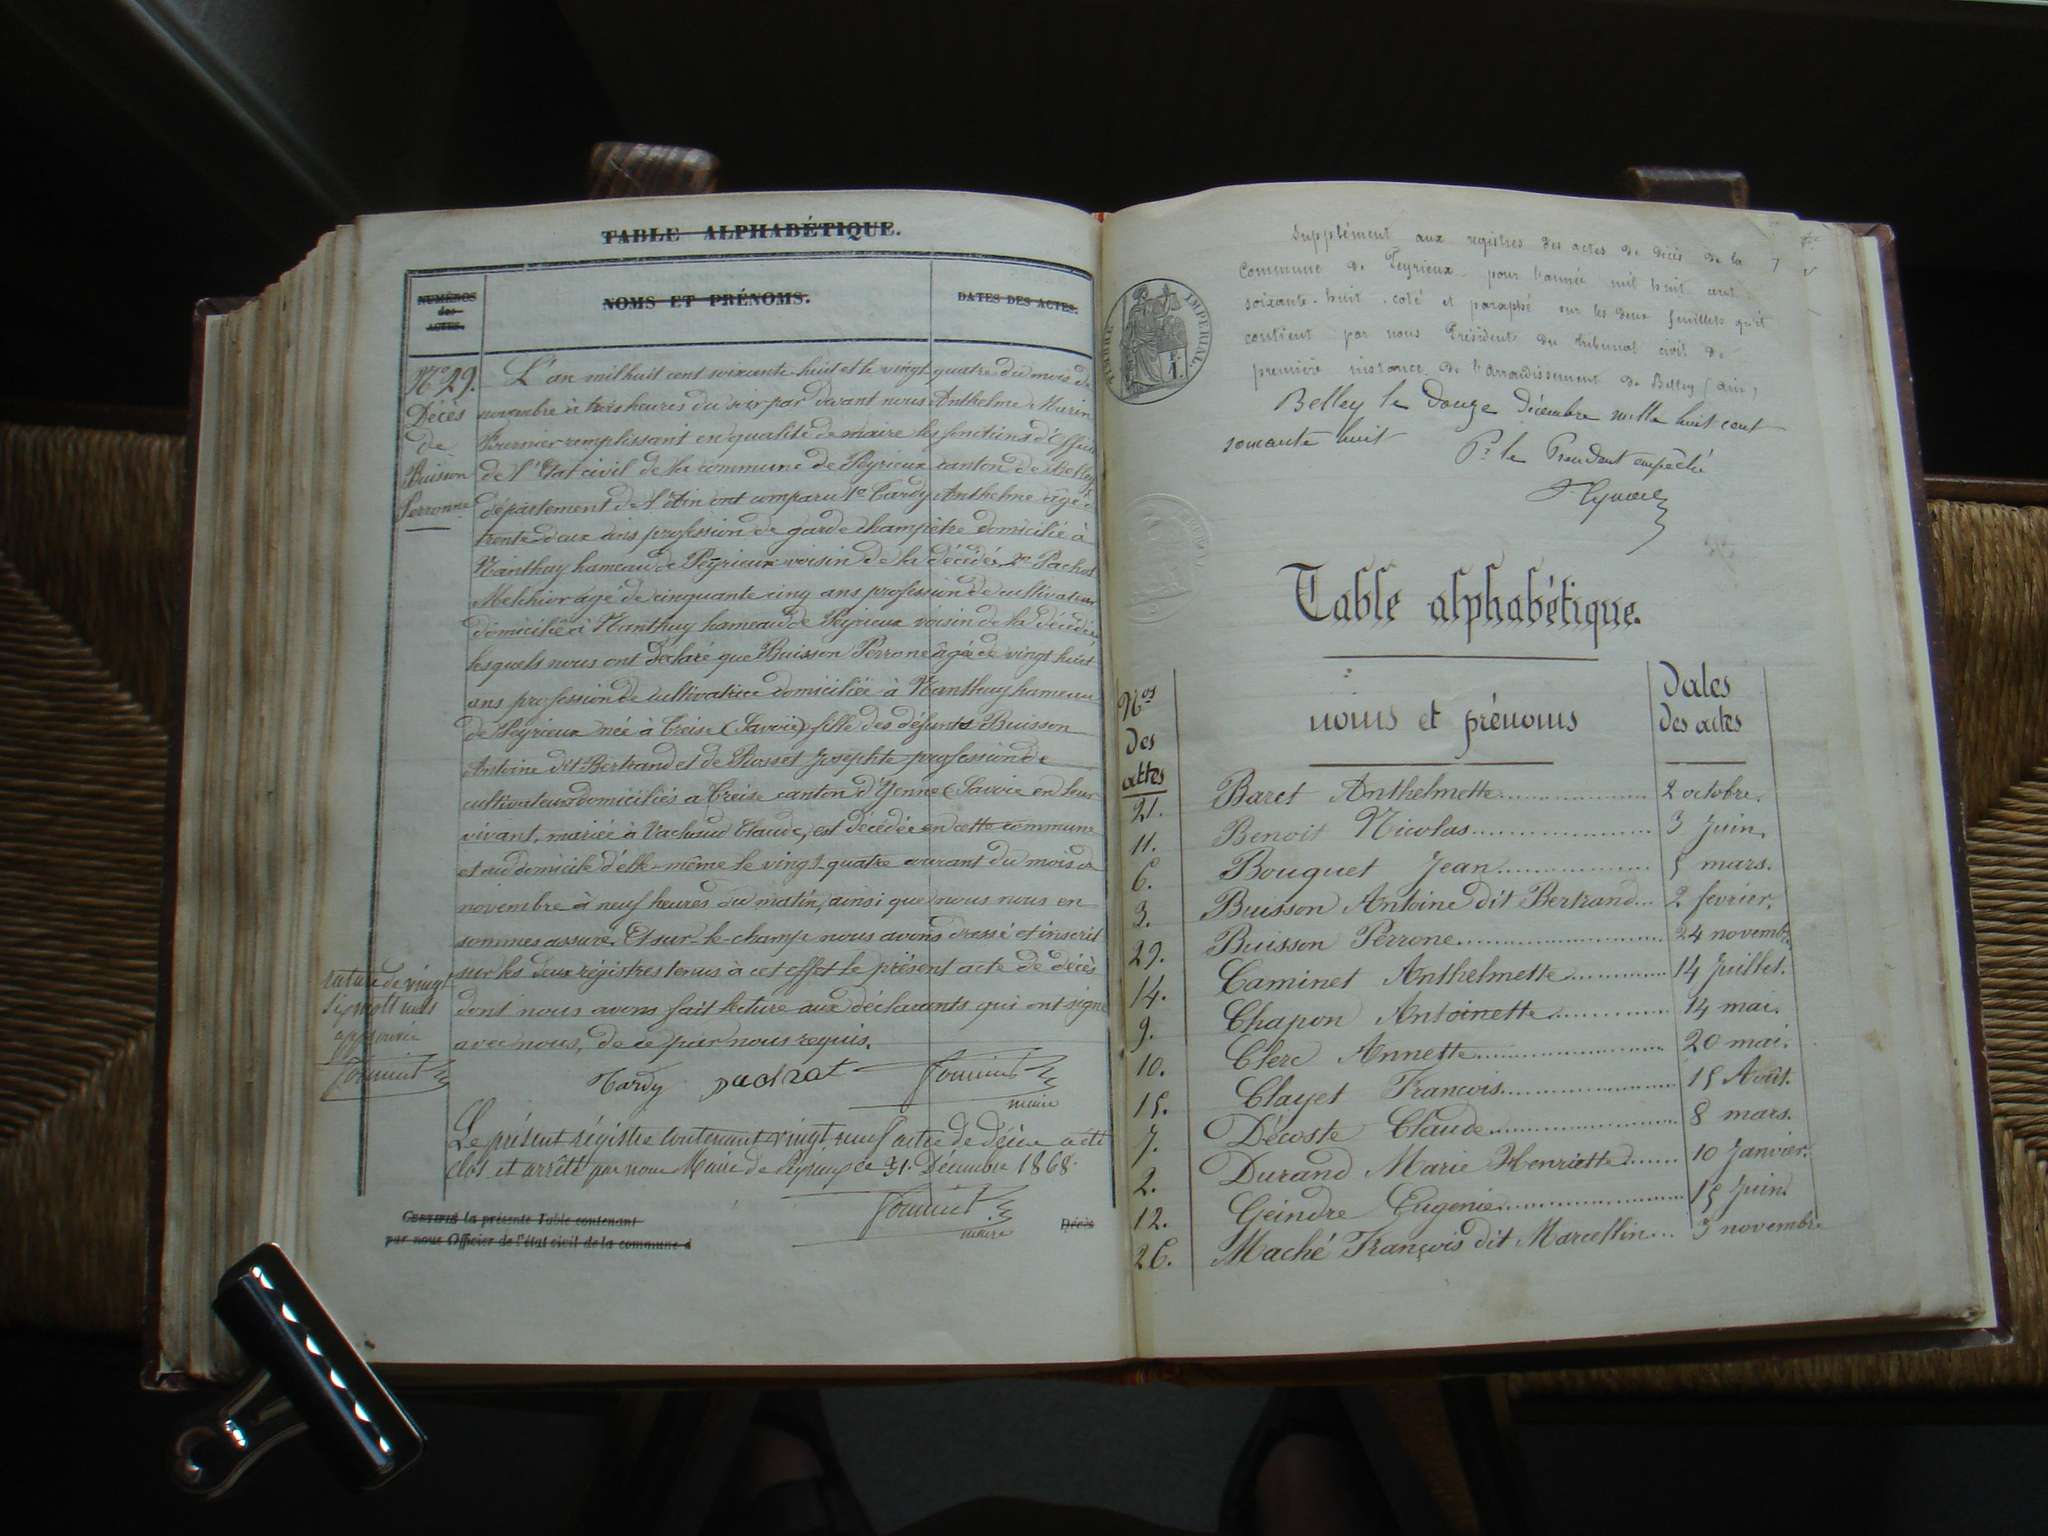 TABLE ALPHABÉTIQUE.
NUMÉROS
des
ACTES.
NOMS ET PRÉNOMS.
DATES DES ACTES.
N° 29.
Décès
de
Buisson
Perronne
L'an mil huit cent soixante huit et le vingt quatre du mois de
novembre à trois heures du soir par devant nous Anthelme Marin
Fournier remplissant en qualité de maire les fonctions d'Officier
de l'Etat civil de la commune de Peyrieux canton de Belley
département de l'Ain ont comparu 1° Tardy Anthelme âgé de
trente deux ans profession de garde champêtre domicilié à
Nanthuy hameau de Peyrieux voisin de la décédée 2° Pachot
Melchior âgé de cinquante cinq ans profession de cultivateur
domicilié à Nanthuy hameau de Peyrieux voisin de la décédée
lesquels nous ont déclaré que Buisson Perrone âgée de vingt huit
ans profession de cultivatrice domiciliée à Nanthuy hameau
de Peyrieux née à Treize (Savoie) fille des défunts Buisson
Antoine dit Bertrand et de Rosset Josephte profession de
cultivateurs domiciliés a Treize canton d'Yenne (Savoie en leur
vivant, mariée à Claude, est décédée en cette commune
et au domicile d'elle-même le vingt quatre courant du mois de
novembre à neuf heures du matin, ainsi que nous nous en
sommes assuré. Et sur-le-champ nous avons dressé et inscrit
sur les deux régistres tenus à cet effet le présent acte de décès
dont nous avons fait lecture aux déclarants qui ont signé
avec nous, de ce par nous requis.
rature de vingt
six mots nuls
approuvée
Fournier
Tardy pachot Fournier
maire
Le présent régistre contenant vingt neuf actes de décès a été
clos et arrêté par nous Maire de Peyrieux ce 31 Décembre 1868.
Fournier
maire
CERTIFIÉ la présente Table contenant
par nous Officier de l'état civil de la commune d
Décès
Supplément aux registres des actes de décès de la
Commune de Peyrieux pour l'année mil huit cent
soixante-huit, coté et paraphé sur les deux feuillets qu'il
contient par nous Président du tribunal civil de
première instance de l'arrondissement de Belley (ain)
Belley le douze décembre mille huit cent
soixante huit
Pr le President empêché
TIMBRE IMPERIAL
1 F.
Table alphabétique.
Nos
des
actes
noms et prénoms
Dates
des actes
21. Baret Anthelmette 2 octobre.
11. Benoit Nicolas 3 Juin.
6. Bouquet Jean 5 mars.
3. Buisson Antoine dit Bertrand 2 fevrier.
29. Buisson Perrone 24 novembre
14. Caminet Anthelmette 14 Juillet.
9. Chapon Antoinette 14 mai.
10. Clerc Annette 20 mai.
15. Clayet François 15 Août.
7. Décoste Claude 8 mars.
2. Durand Marie Henriette 10 Janvier.
12. Geindre Eugenie 15 Juin.
26. Maché François dit Marcellin 3 novembre